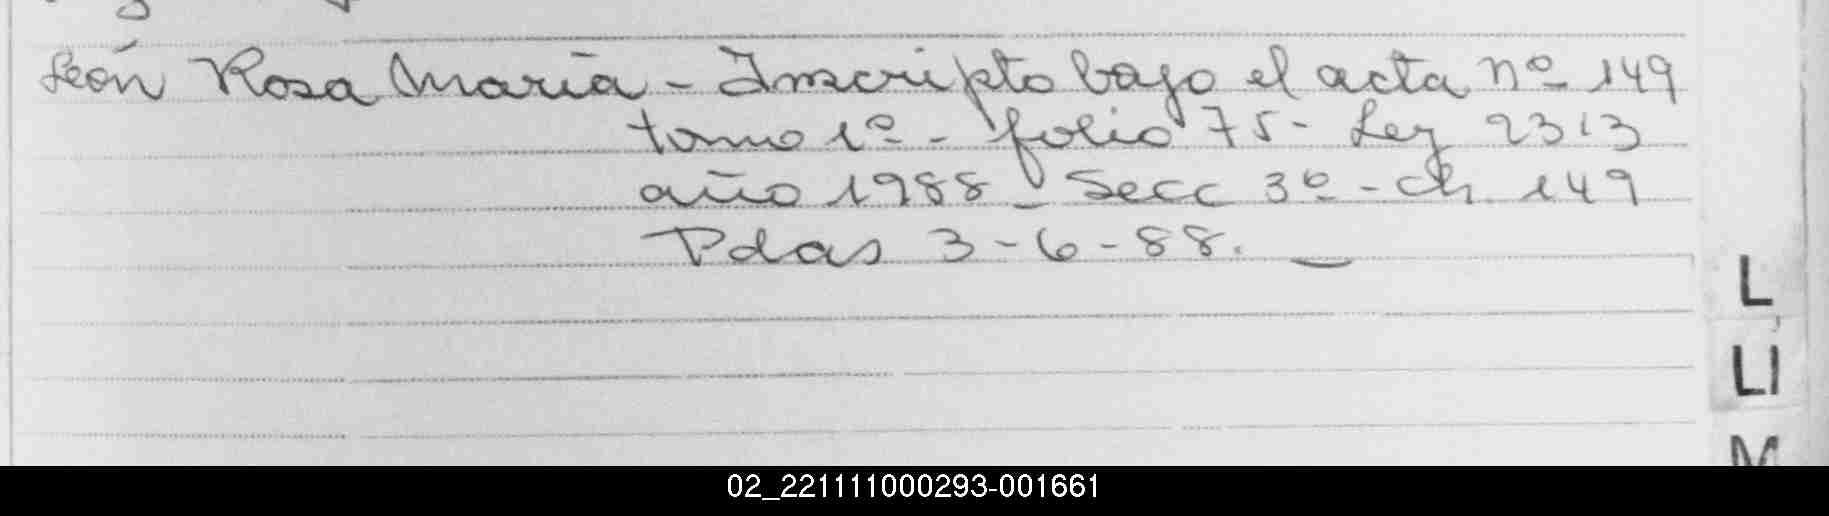 León Rosa María - Inscripto bajo el acta nº 149
tomo 1º - folio 75 - Ley 2313
año 1988 - Secc 3º - Ch. 149
Pdas 3-6-88. _
L
LI
M
02_221111000293-001661